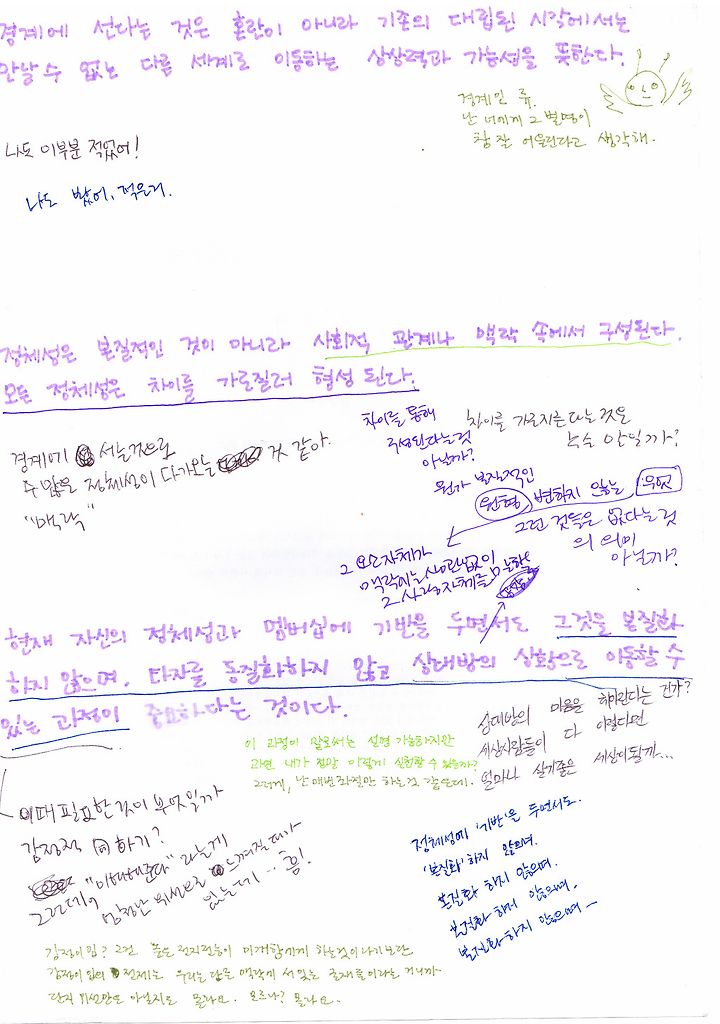 경계에 선다는 것은 혼란이 아니라 기존의 대립된 시각에서는
만날 수 없는 다른 세계로 이동하는 상상력과 가능성을 뜻한다.
경계인 류.
난 너에게 그 별명이
참 잘 어울린다고 생각해.
나도 이부분 적었어!
나도 봤어, 적은거.
정체성은 본질적인 것이 아니라 사회적 관계나 맥락 속에서 구성된다.
모든 정체성은 차이를 가로질러 형성 된다.
차이를 통해
구성된다는것
아닐까?
차이를 가로지른다는것은
경계에 서는것으로
수많은 정체성이 다가오는 것 같아.
"맥락"
뭔가 본질적인
원형 변하지 않는 무엇
그런 것들은 없다는 것
의 의미
아닐까?
그 요소자체가
맥락에는 상관없이
그 사람자체를
현재 자신의 정체성과 멤버십에 기반을 두면서도 그것을 본질화
하지 않으며, 타자를 동질화하지 않고 상대방의 상황으로 이동할 수
있는 과정이 중요하다는 것이다.
상대방의 마음을 헤아린다는 건가?
세상사람들이 다 이렇다면
얼마나 살기좋은 세상이될까...
이 과정이 말로써는 설명 가능하지만
과연 내가 정말 이렇게 실천할 수 있을까?
그러게, 난 매번 좌절만 하는것 같은데.
이때 필요한것이 무엇일까
감정적 이입하기?
그런데, "이해해준다" 라는게
엄청난 위선으로 느껴질 때가
있는데... 흠!
정체성에 '기반'은 두면서도.
'본질화' 하지 않으며.
본질화 하지 않으며.
본질화 하지 않으며.
본질화 하지 않으며~
감정이입? 그건
감정이입의 전제는 우리는 다른 맥락에 서 있는 존재들이라는 거니까
단지 위선만은 아닐지도 몰라요. 모르나? 몰라요.